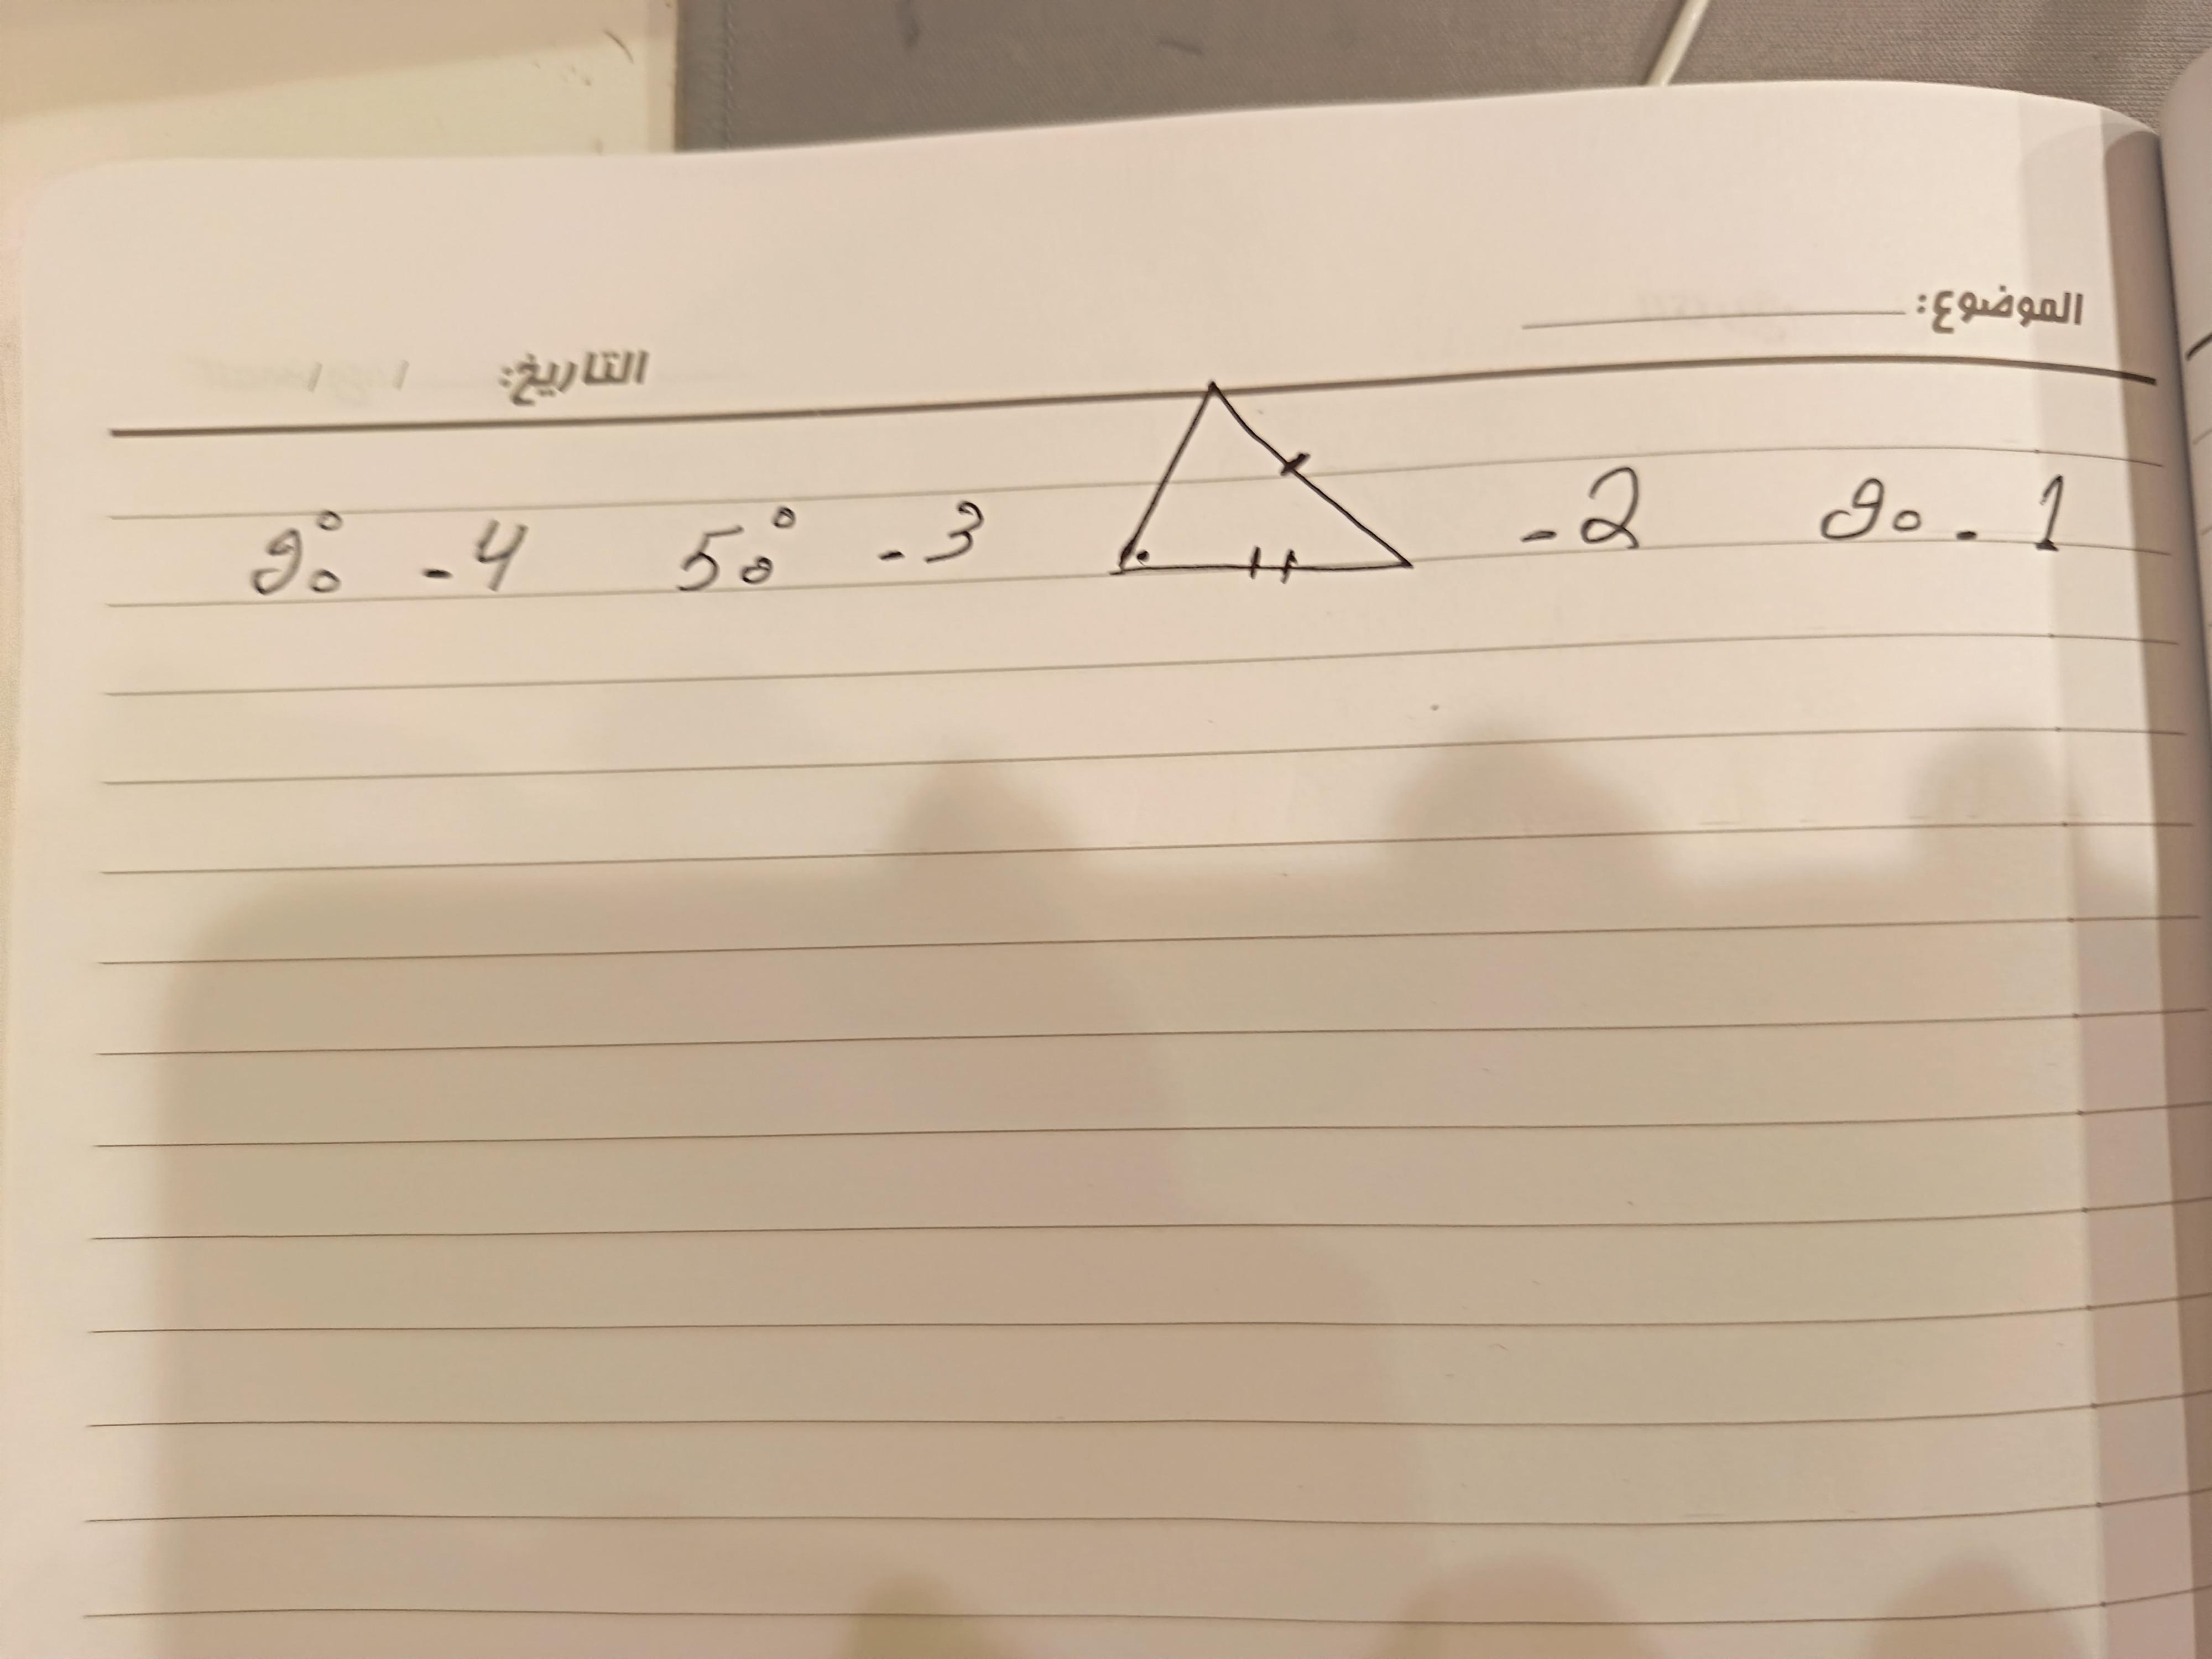 الموضوع:
التاريخ: / /
1 - 90 2 - 3 - 50° 4 - 90°